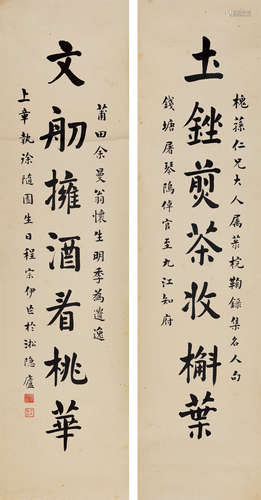 土銼煎茶收槲葉
槐蓀仁兄大人属葉梡鞠錄集名人句
錢塘屠琴隝倬官至九江知府
文舠擁酒看桃華
莆田余曼翁懷生明季為遺逸
上章執徐随園生日程宗伊
於淞隐廬